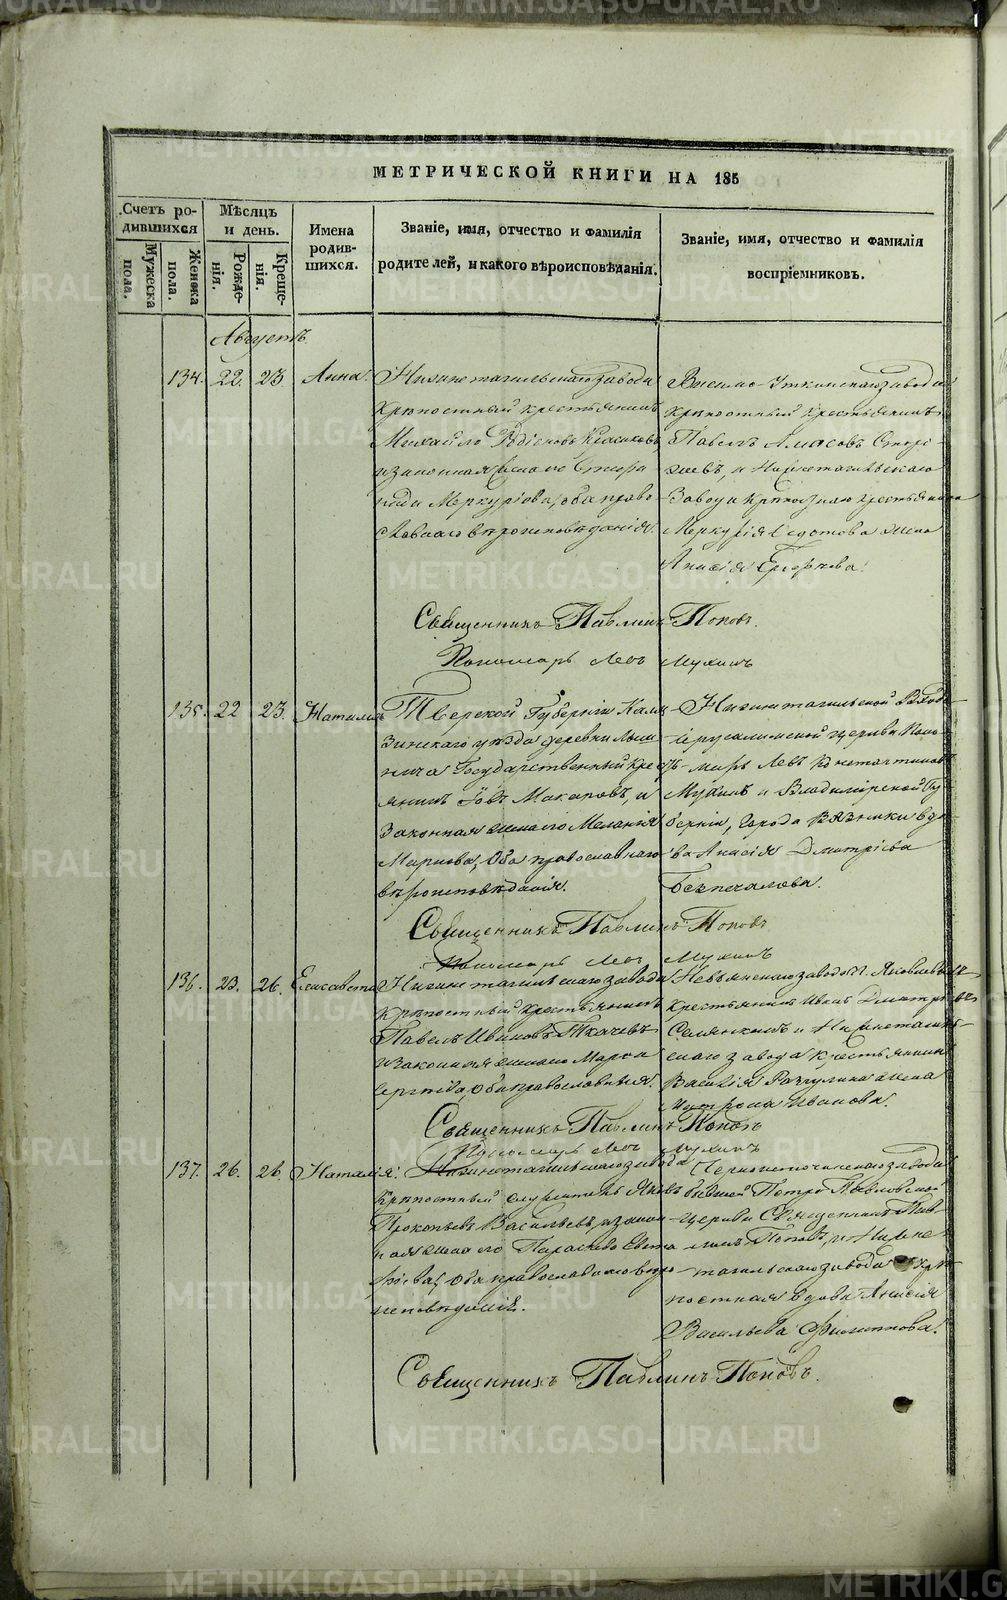 МЕТРИЧЕСКОЙ КНИГИ НА 185
Счетъ ро-
дившихся
Мужеска
пола.
Женска
пола.
Мѣсяцъ
и день.
Рожде-
нія.
Креще-
нія.
Имена
родив-
шихся.
Званіе, имя, отчество и фамилія
родителей, и какого вѣроисповѣданія.
Званіе, имя, отчество и фамилія
воспріемниковъ.
Августъ
134. 22. 23 Анна.
Нижнетагильскаго завода
крѣпостный крестьянинъ
Михайло Родіоновъ
и законная жена его
Меркуріева, оба право-
славнаго вѣроисповѣданія.
Висимо-Уткинскаго завода
крѣпостный крестьянинъ
Павелъ
и Нижнетагильскаго
завода крѣпостнаго крестьянина
Меркурія Федотова жена
Анисія Егорова.
Священникъ Павлинъ Поповъ.
Пономарь Левъ Мухинъ
135. 22 23. Наталія
Тверской Губерніи Каля-
зинскаго уѣзда деревни
Государственный крестъ-
янинъ Іовъ Макаровъ, и
законная жена его Меланія
Маркова, оба православнаго
вѣроисповѣданія.
Нижнетагильской Входо-
іерусалимской церкви Поно-
марь Левъ Константиновъ
Мухинъ и Владимірской Гу-
берніи, Города Вязники вдо-
ва Анисія Дмитріева
Безпечалова.
Священникъ Павлинъ Поповъ
Пономарь Левъ Мухинъ
136. 23. 26. Елисавета
Нижнетагильскаго завода
крѣпостный крестьянинъ
Павелъ Ивановъ Ткачевъ
и законная жена его Марѳа
Сергѣева, оба православныя.
Невьянскаго завода г. Яковлева
крестьянинъ Иванъ Дмитріевъ
Селянкинъ и Нижнетагиль-
скаго завода крестьянина
Василія Разгулина жена
Матрона Иванова.
Священникъ Павлинъ Поповъ
Пономарь Левъ Мухинъ
137. 26. 26. Наталія.
Нижнетагильскаго завода
крѣпостный служитель Яковъ
Прокопьевъ Васильевъ, и закон-
ная жена его Параскева Евста-
фіева, оба православнаго вѣро-
исповѣданія.
Черноисточинскаго завода
бывшей Петро Павловской
церкви Священникъ Пав-
линъ Поповъ, и Нижне-
тагильскаго завода крѣ-
постная вдова Анисія
Васильева Филиппова.
Священникъ Павлинъ Поповъ.
METRIKI.GASO-URAL.RU